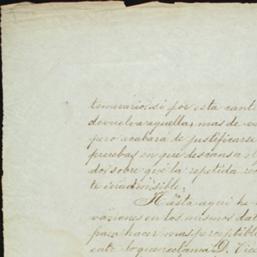 temerario; si por esta cant
devuelva aquellas, mas de
pero acabará de justificarse
pruebas en que descansa el
doi sobre que la repetida
te inadmisible.
Hasta aqui he
vaciones en los mismos dat
para hacer mas perceptible
ente lo que reclama D. Vice